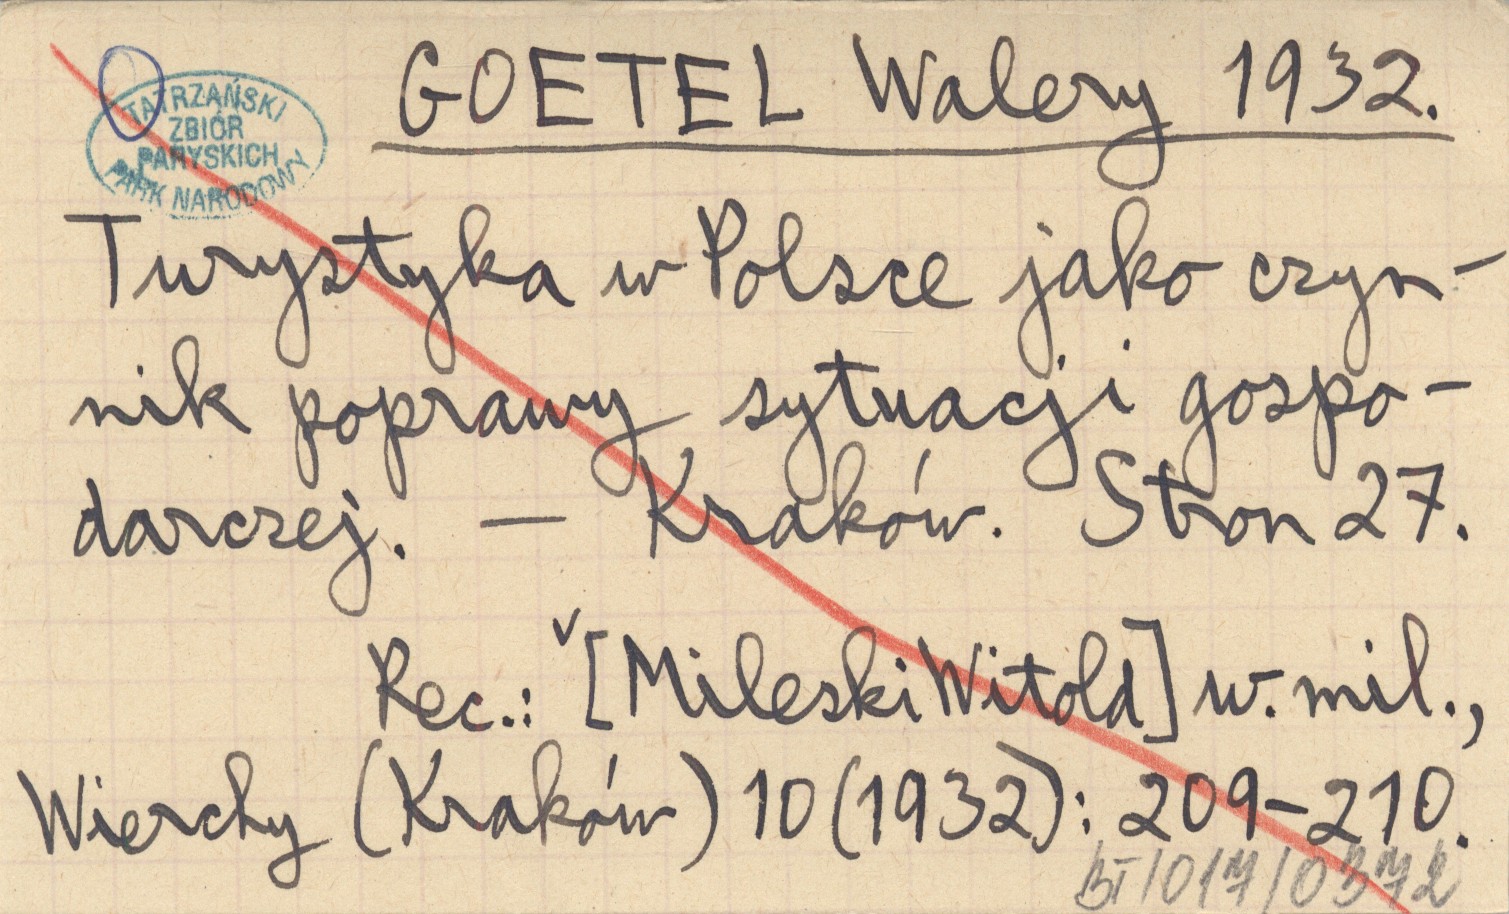 GOETEL Walery 1932.
TATRZAŃSKI
ZBIÓR
PARYSKICH
PARK NARODOWY
Turystyka w Polsce jako czyn-
nik poprawy sytuacji gospo-
darczej. — Kraków. Stron 27.
Rec.: [Mileski Witold] w. mil.,
Wierchy (Kraków) 10 (1932): 209-210.
BT/017/0372